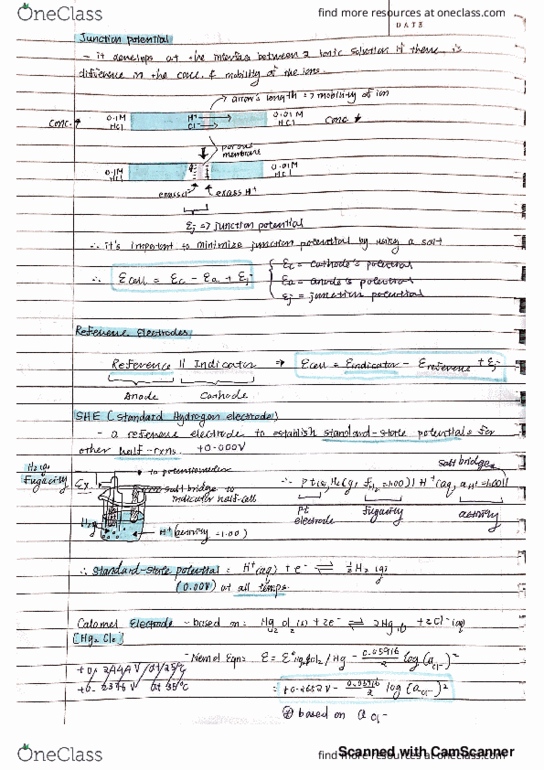 OneClass
find more resources at oneclass.com
DATE
Junction potential
- it develops at the interface between 2 ionic solution if there is
difference in the conc. & mobility of the ions.
arrow's length => mobility of ion
conc. ↑ 0.1M HCl H+ Cl- 0.01M HCl conc ↓
porous membrane
0.1M HCl 0.01M HCl
excess Cl- excess H+
Ej => junction potential
∴ it's important to minimize junction potential by using a salt
∴ Ecell = Ec - Ea + Ej
Ec = cathode's potential
Ea = anode's potential
Ej = junction potential
Reference Electrodes
Reference || Indicator → Ecell = Eindicator - Ereference + Ej
Anode Cathode
SHE (standard Hydrogen electrode)
- a reference electrode to establish standard-state potentials for
other half-rxns. +0.000V
H2 (g) Fugacity
Ex
to potentiometer
salt bridge to indicator half-cell
H2 g
H+ (activity = 1.00)
salt bridge
∴ Pt (s), H2 (g, fH2 = 1.00) | H+ (aq, aH+ = 1.00) ||
Pt electrode fugacity activity
∴ Standard-state potential: H+ (aq) + e- ⇌ ½ H2 (g)
(0.00V) at all temps.
Calomel Electrode - based on: Hg2Cl2 (s) + 2e- ⇌ 2Hg (l) + 2Cl- (aq)
[Hg2Cl2]
- Nernst Eqn: E = E°Hg2Cl2/Hg - 0.05916/2 log (aCl-)²
+0.2444 V /at 25°C
= +0.2682V - 0.05916/2 log (aCl-)²
based on aCl-
Scanned with CamScanner
OneClass
find more resources at oneclass.com